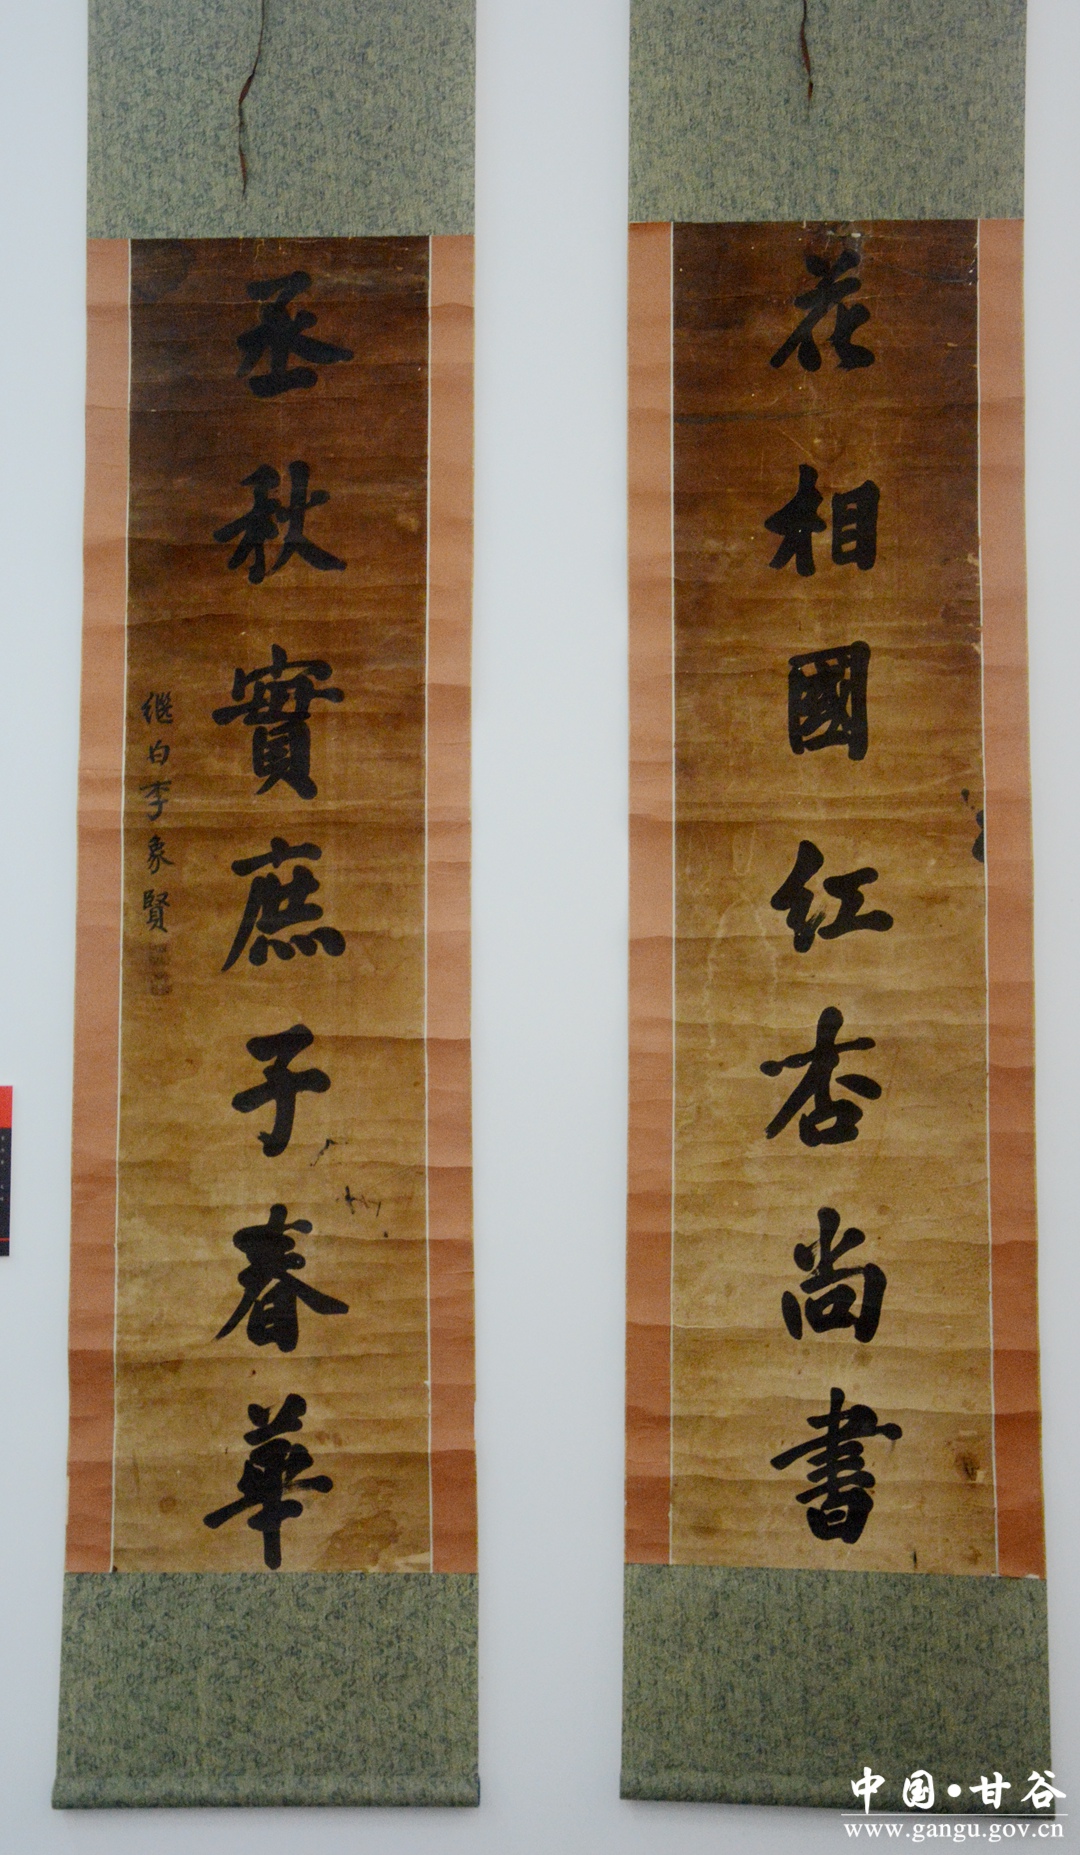 花相國红杏尚書
丞秋實庶子春華
继白李象賢
中国·甘谷
www.gangu.gov.cn